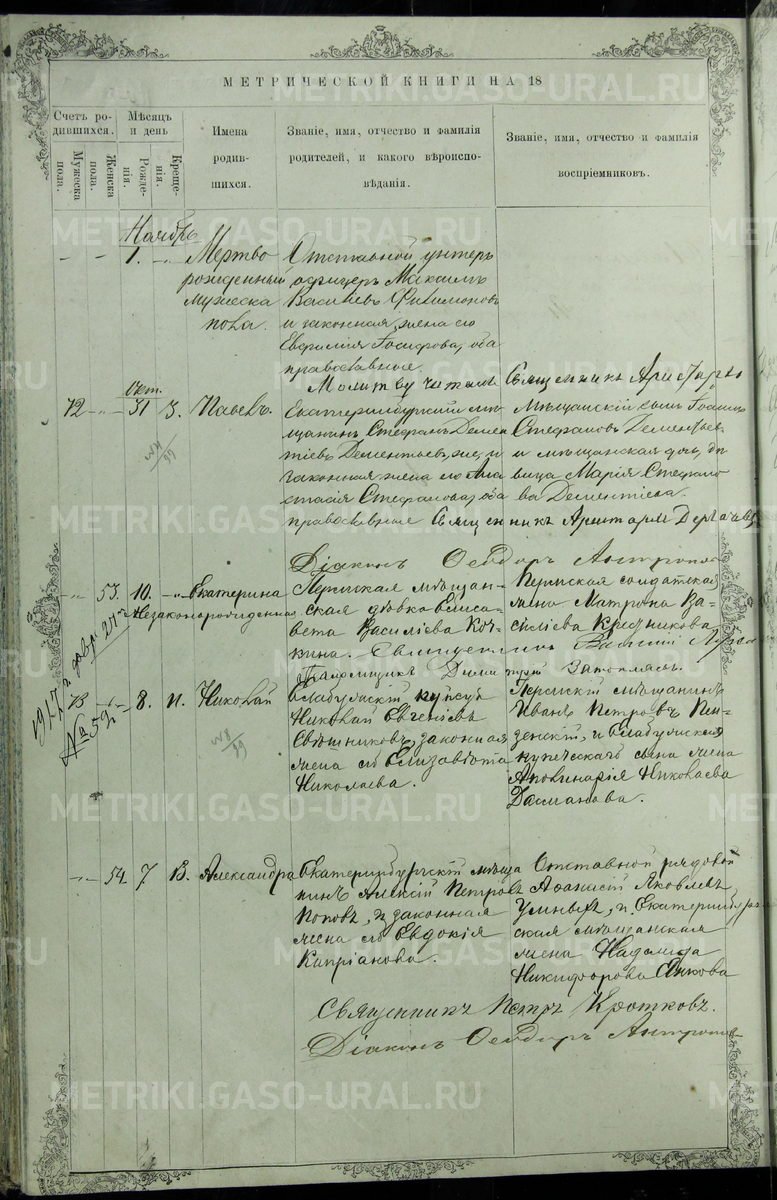 МЕТРИЧЕСКОЙ КНИГИ НА 18
Счетъ родившихся.
Мужеска пола.
Женска пола.
Мѣсяцъ и день
Рожденія.
Крещенія.
Имена родившихся.
Званіе, имя, отчество и фамилія родителей, и какого вѣроисповѣданія.
Званіе, имя, отчество и фамилія воспріемниковъ.
Ноябрь
1.
Мертво
рожденный
мужеска
пола.
Отставной унтеръ
офицеръ Максимъ
Васильевъ Филимоновъ
и законная жена его
Евфимія Іосифова, оба
православные.
Молитву читалъ Священникъ
Окт.
72 31 3. Павелъ.
Екатеринбургскій мѣ
щанинъ Стефанъ Демен
тіевъ Дементьевъ, и
законная жена его Ана
стасія Стефанова, оба
православные
Мѣщанскій сынъ Іоаннъ
Стефановъ Дементьев
и мѣщанская дочь, дѣ
вица Марія Стефано
ва Дементіева.
Священникъ Аристархъ
Діаконъ Ѳеодоръ
53. 10. Екатерина
Незаконнорожденная
Пермская мѣщан-
ская дѣвка Елиса-
вета Василіева
кина.
Пермская солдатская
жена Матрона Ва-
силіева Кудникова
Священникъ Василій
Псаломщикъ Димитрій
1917 г. февр. 21
№ 52
73 8. 11. Николай
Елабужскій купецъ
Николай Евгеніевъ
Свѣшниковъ, законная
жена его Елизавѣта
Николаева.
Пермскій мѣщанинъ
Иванъ Петровъ
и Елабужская
купеческаго сына жена
Аполинарія Николаева
54. 7 8. Александра
Екатеринбургскій мѣща
нинъ Алексій Петровъ
Поповъ, и законная
жена его Евдокія
Кипріанова.
Отставной рядовой
Аѳанасій Яковлевъ
Умныхъ, и Екатеринбург
ская мѣщанская
жена Надежда
Никифорова
Священникъ Петръ Кротковъ.
Діаконъ Ѳеодоръ
METRIKI.GASO-URAL.RU